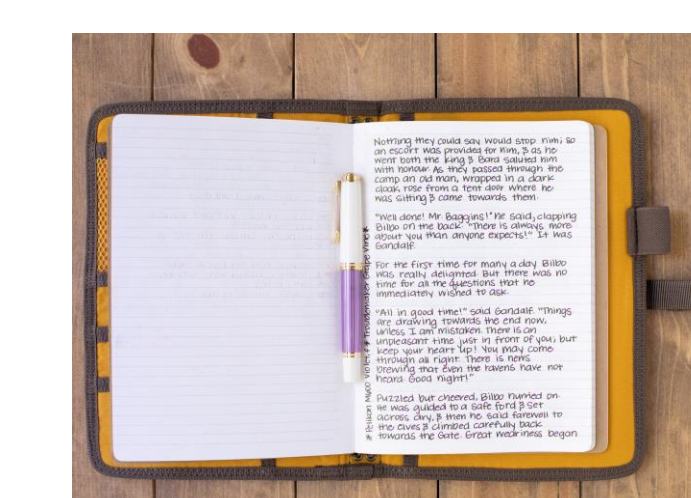 Nothing they could say would stop him; so
an escort was provided for him, & as he
went both the king & Bard saluted him
with honour. As they passed through the
camp an old man, wrapped in a dark
cloak, rose from a tent door where he
was sitting & came towards them.
"Well done! Mr. Baggins!" he said, clapping
Bilbo on the back. "There is always more
about you than anyone expects!" It was
Gandalf.
For the first time for many a day Bilbo
was really delighted. But there was no
time for all the questions that he
immediately wished to ask.
"All in good time!" said Gandalf. "Things
are drawing towards the end now,
unless I am mistaken. There is an
unpleasant time just in front of you; but
keep your heart up! You may come
through all right. There is news
brewing that even the ravens have not
heard. Good night!"
Puzzled but cheered, Bilbo hurried on.
He was guided to a safe ford & set
across dry, & then he said farewell to
the elves & climbed carefully back
towards the Gate. Great weariness began
* Pelikan M600 Violet, F * Troublemaker Grape Vine *